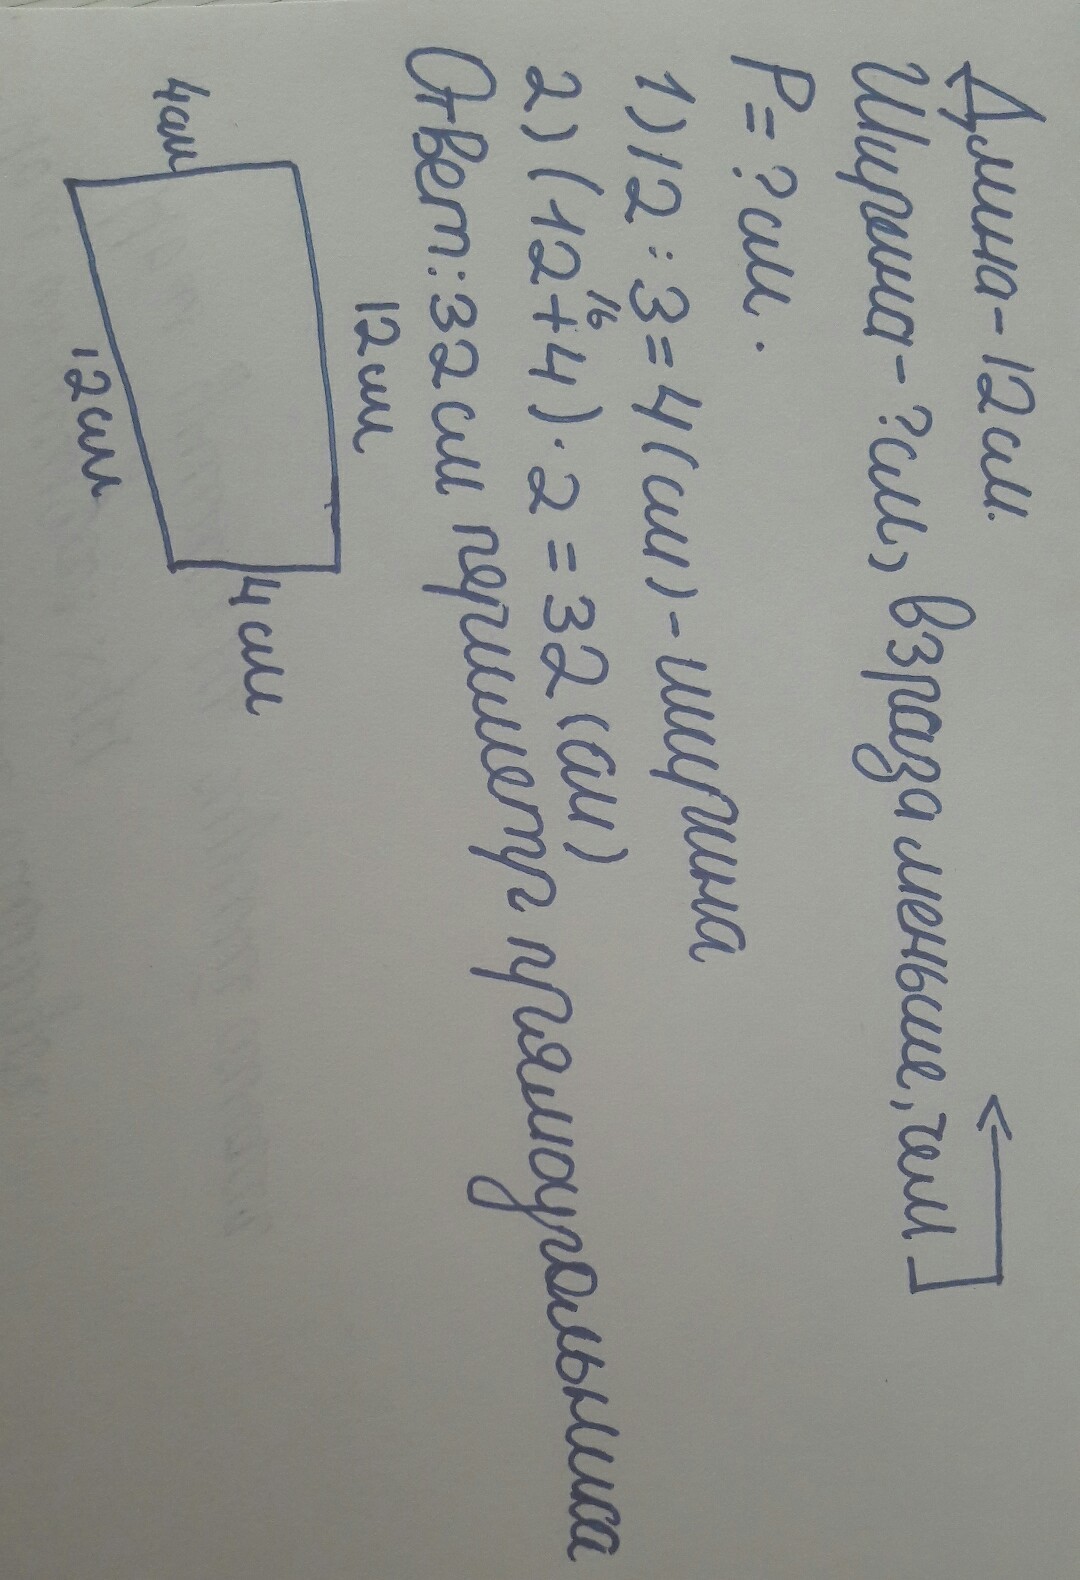 Длина-12см.
Ширина-?см, в 3 раза меньше, чем
P=?см.
1) 12:3=4(см)-ширина
16
2) (12+4)·2=32(см)
Ответ:32см периметр прямоугольника
12см
4см
4см
12см